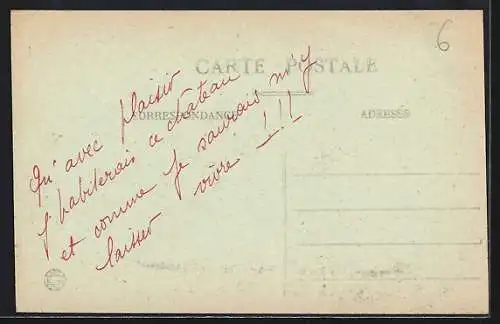 6
CARTE POSTALE
CORRESPONDANCE
ADRESSE
Qu'avec plaisir
j'habiterais ce château
et comme je saurais m'y
laisser vivre !!!